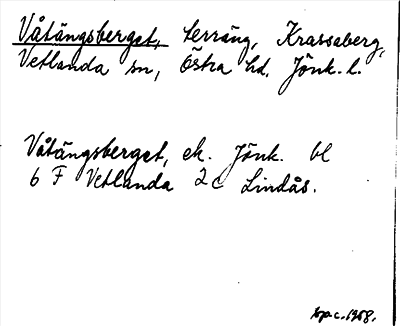 Våtängsberget, terräng, Krassaberg,
Vetlanda sn, Östra hd, Jönk. l.
Våtängsberget, ek. Jönk. bl
6 F Vetlanda 2c Lindås.
1968.